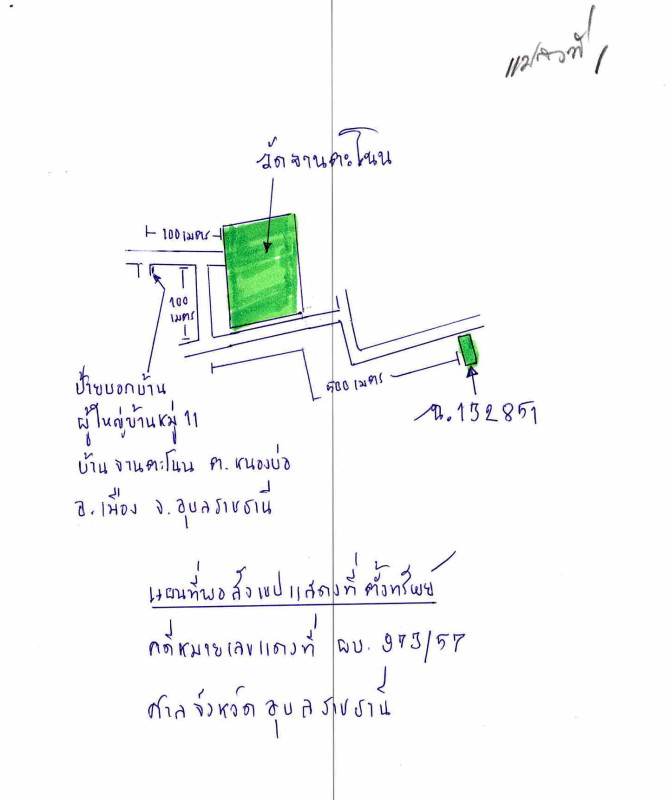 แปลงที่ 1
วัดจานตะโนน
100 เมตร
100
เมตร
500 เมตร
น.132851
ป้ายบอกบ้าน
ผู้ใหญ่บ้านหมู่ 11
บ้านจานตะโนน ต.หนองบ่อ
อ.เมือง จ.อุบลราชธานี
แผนที่พอสังเขปแสดงที่ตั้งทรัพย์
คดีหมายเลขแดงที่ ผบ. 973/57
ศาลจังหวัดอุบลราชธานี